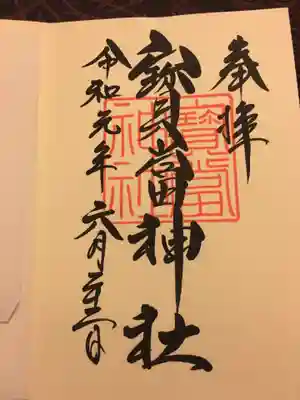 奉拝
寳當神社
令和元年 六月二十二日
寳當
神社